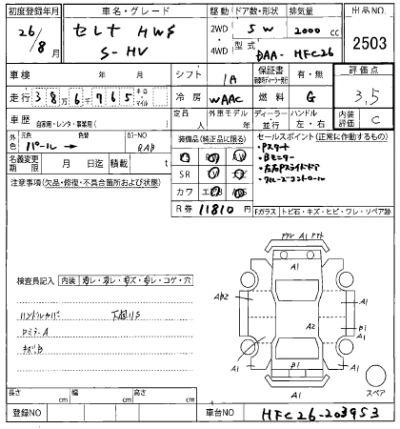 初度登録年月 車名・グレード 駆動 ドア数/形状 排気量 出品NO
26/8月 セレナ HWS S-HV 2WD・4WD 5W 2000cc 2503
型式 DAA-HFC26
車検 年 月 シフト IA 保証書 有・無 評価点
走行 386765 キロ マイル 冷房 WAAC 燃料 G 3.5
車歴 自家用・レンタ・事業用( ) 定員 人 外車モデル 年 ハンドル 左・右 内装評価 C
外色 元色 パール→ 色替 カラーNO RAB
装備品(純正品に限る) セールスポイント(正常に動作するもの)
名義変更期限 月 日迄 積載 t
SR
カワ
・Pスタート
・Bモニター
・左右Pスライドドア
・クルーズコントロール
注意事項(欠品・修復・不具合箇所および状態)
R券 11810円
Fガラス トビ石・キズ・ヒビ・ワレ・リペア跡
A1
A1
検査員記入 内装
コゲ・穴
A1
AB2
A1
ハンドルカバー 下廻りS
A2
B1
A1
B1
A1
A1
A1
スペア
長さ cm 幅 cm 高さ cm
登録NO 車台NO HFC26-203953